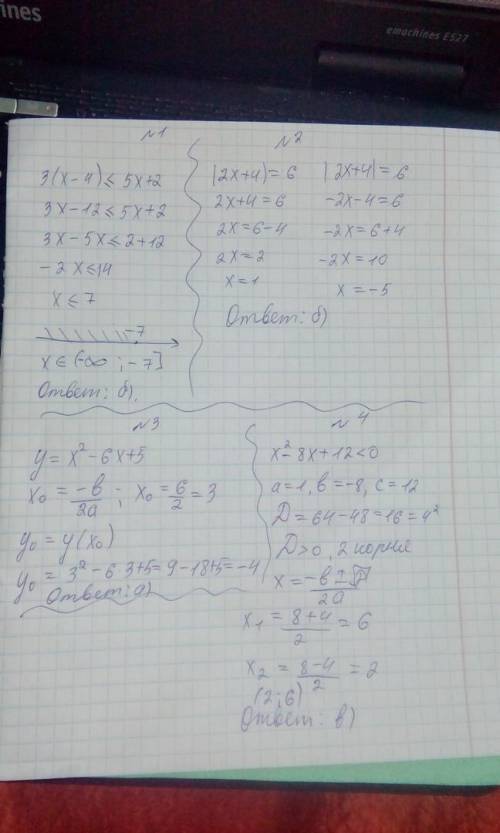 ines
emachines E527
№1
3(x-4) ≤ 5x+2
3x-12 ≤ 5x+2
3x-5x ≤ 2+12
-2x ≤ 14
x ≤ 7
-7
x ∈ (-∞ ; -7]
Ответ: б).
№2
|2x+4| = 6
2x+4 = 6
2x = 6-4
2x = 2
x = 1
|2x+4| = 6
-2x-4 = 6
-2x = 6+4
-2x = 10
x = -5
Ответ: б)
№3
y = x²-6x+5
x₀ = -b/2a ; x₀ = 6/2 = 3
y₀ = y(x₀)
y₀ = 3²-6 3+5 = 9-18+5 = -4
Ответ: а)
№4
x²-8x+12<0
a=1, b=-8, c=12
D = 64-48 = 16 = 4²
D>0, 2 корня
x = -b±√D/2a
x₁ = 8+4/2 = 6
x₂ = 8-4/2 = 2
(2;6)
Ответ: в)